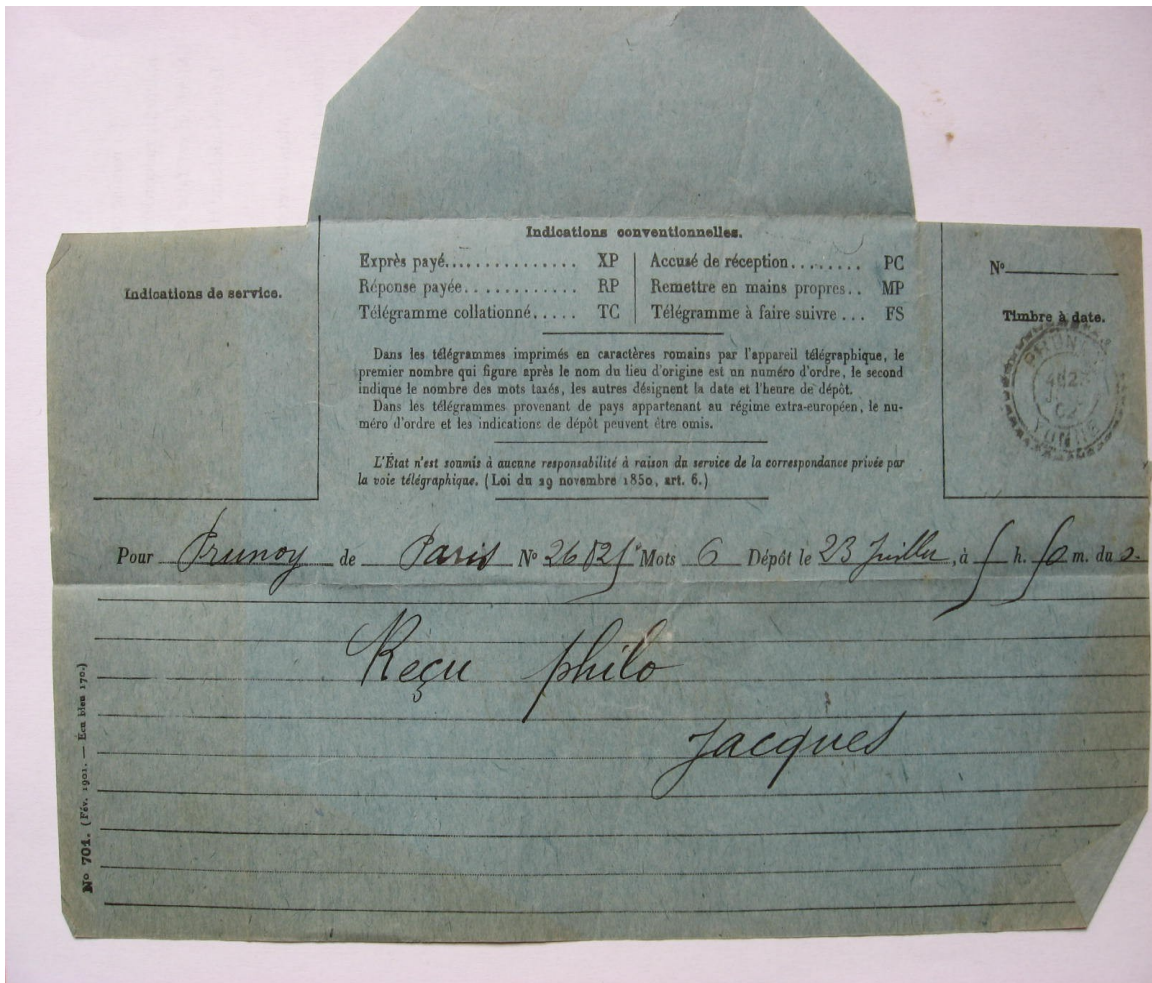 Indications conventionnelles.
Exprès payé............... XP
Réponse payée............ RP
Télégramme collationné..... TC
Accusé de réception........ PC
Remettre en mains propres.. MP
Télégramme à faire suivre... FS
Indications de service.
Nº
Timbre à date.
YONNE
Dans les télégrammes imprimés en caractères romains par l'appareil télégraphique, le
premier nombre qui figure après le nom du lieu d'origine est un numéro d'ordre, le second
indique le nombre des mots taxés, les autres désignent la date et l'heure de dépôt.
Dans les télégrammes provenant de pays appartenant au régime extra-européen, le nu-
méro d'ordre et les indications de dépôt peuvent être omis.
L'État n'est soumis à aucune responsabilité à raison du service de la correspondance privée par
la voie télégraphique. (Loi du 29 novembre 1850, art. 6.)
Pour Prunoy de Paris Nº Mots 6 Dépôt le 23 Juillet, à h. m. du
Reçu philo
Jacques
Nº 701. (Fév. 1901. — Eon bleu 170.)